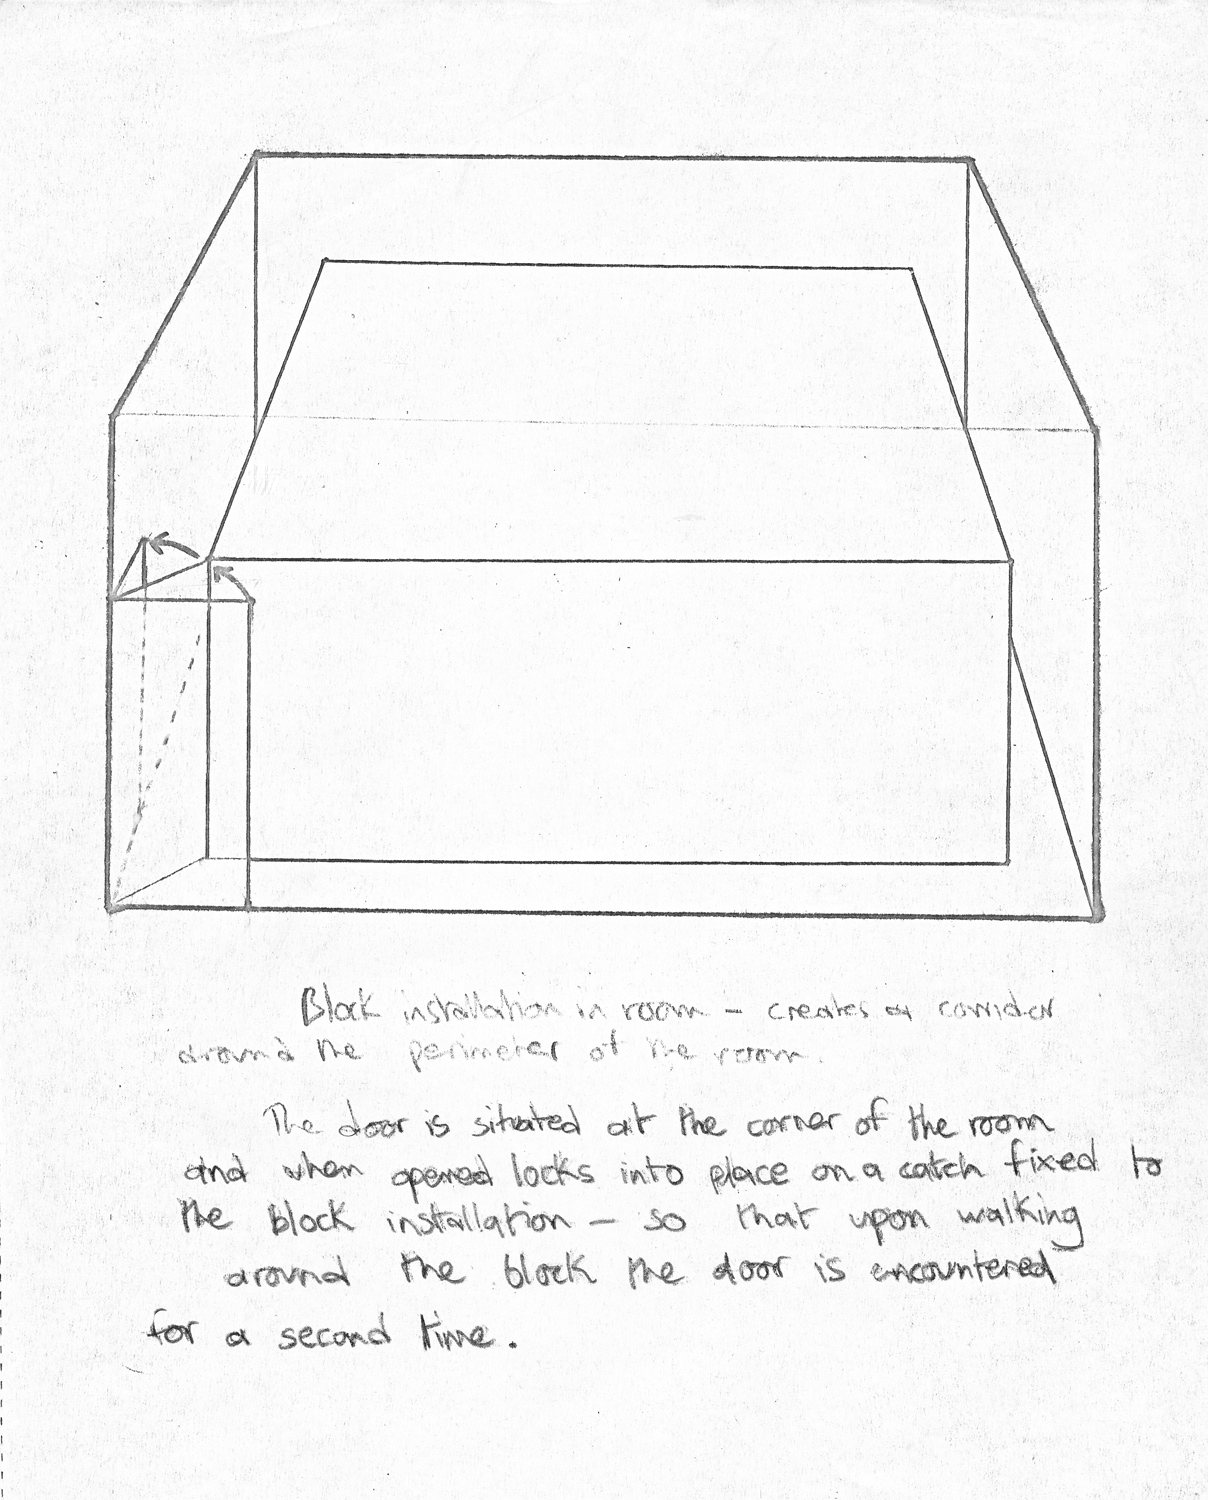 Block installation in room – creates a corridor
around the perimeter of the room.
The door is situated at the corner of the room
and when opened locks into place on a catch fixed to
the block installation – so that upon walking
around the block the door is encountered
for a second time.